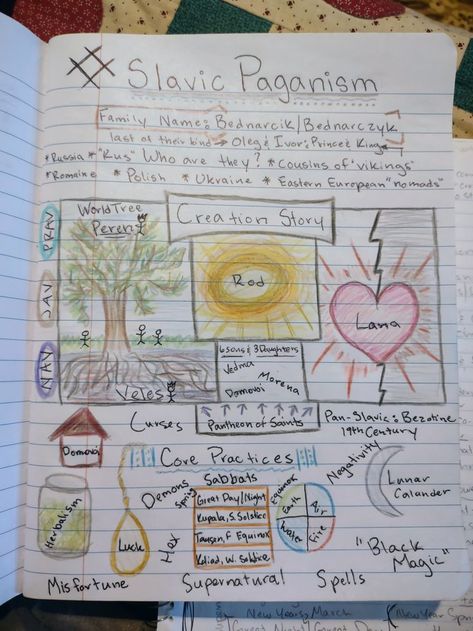 Slavic Paganism
Family Name: Bednarcik/Bednarczyk
last of their kind → Oleg & Ivor: Prince & King
*Russia * "Rus" Who are they? * cousins of "vikings"
*Romaine * Polish * Ukraine * Eastern European "nomads"
PRAV
JAV
NAV
World Tree
Peren
Veles
Creation Story
Rod
Lana
6 sons & 3 Daughters
Vedma
Domovoi
Morena
Pantheon of Saints
Curses
Pan-Slavic: Bezotine
19th Century
Domova
Core Practices
Negativity
Lunar
Calander
Herbalism
Luck
Demons
Hex
Sabbats
Spring
Equinox
Great Day/Night
Kupala, S. Solstice
Tausen, F Equinox
Koliad, W. Solstice
Earth
Air
Water
Fire
"Black
Magic"
Misfortune
Supernatural
Spells
New Years, March
New Year